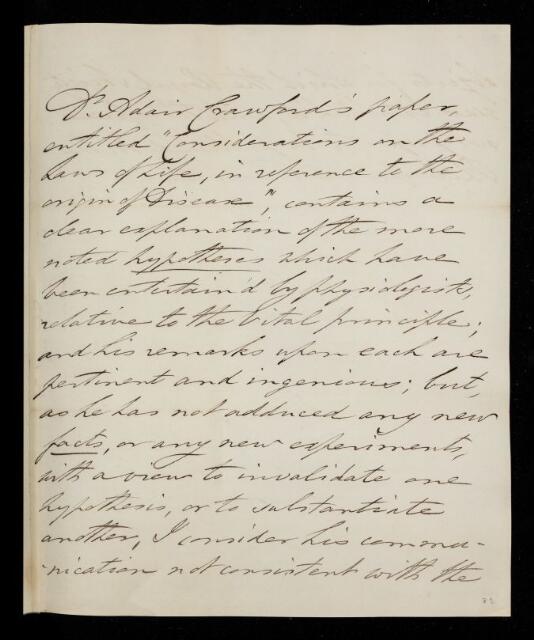 Dr. Adair Crawford's paper,
entitled "Considerations on the
Laws of Life, in reference to the
origin of Disease," contains a
clear explanation of the more
noted hypotheses which have
been entertain'd by physiologists,
relative to the Vital principle;
and his remarks upon each are
pertinent and ingenious; but,
as he has not adduced any new
facts, or any new experiments,
with a view to invalidate one
hypothesis, or to substantiate
another, I consider his commu-
nication not consistent with the